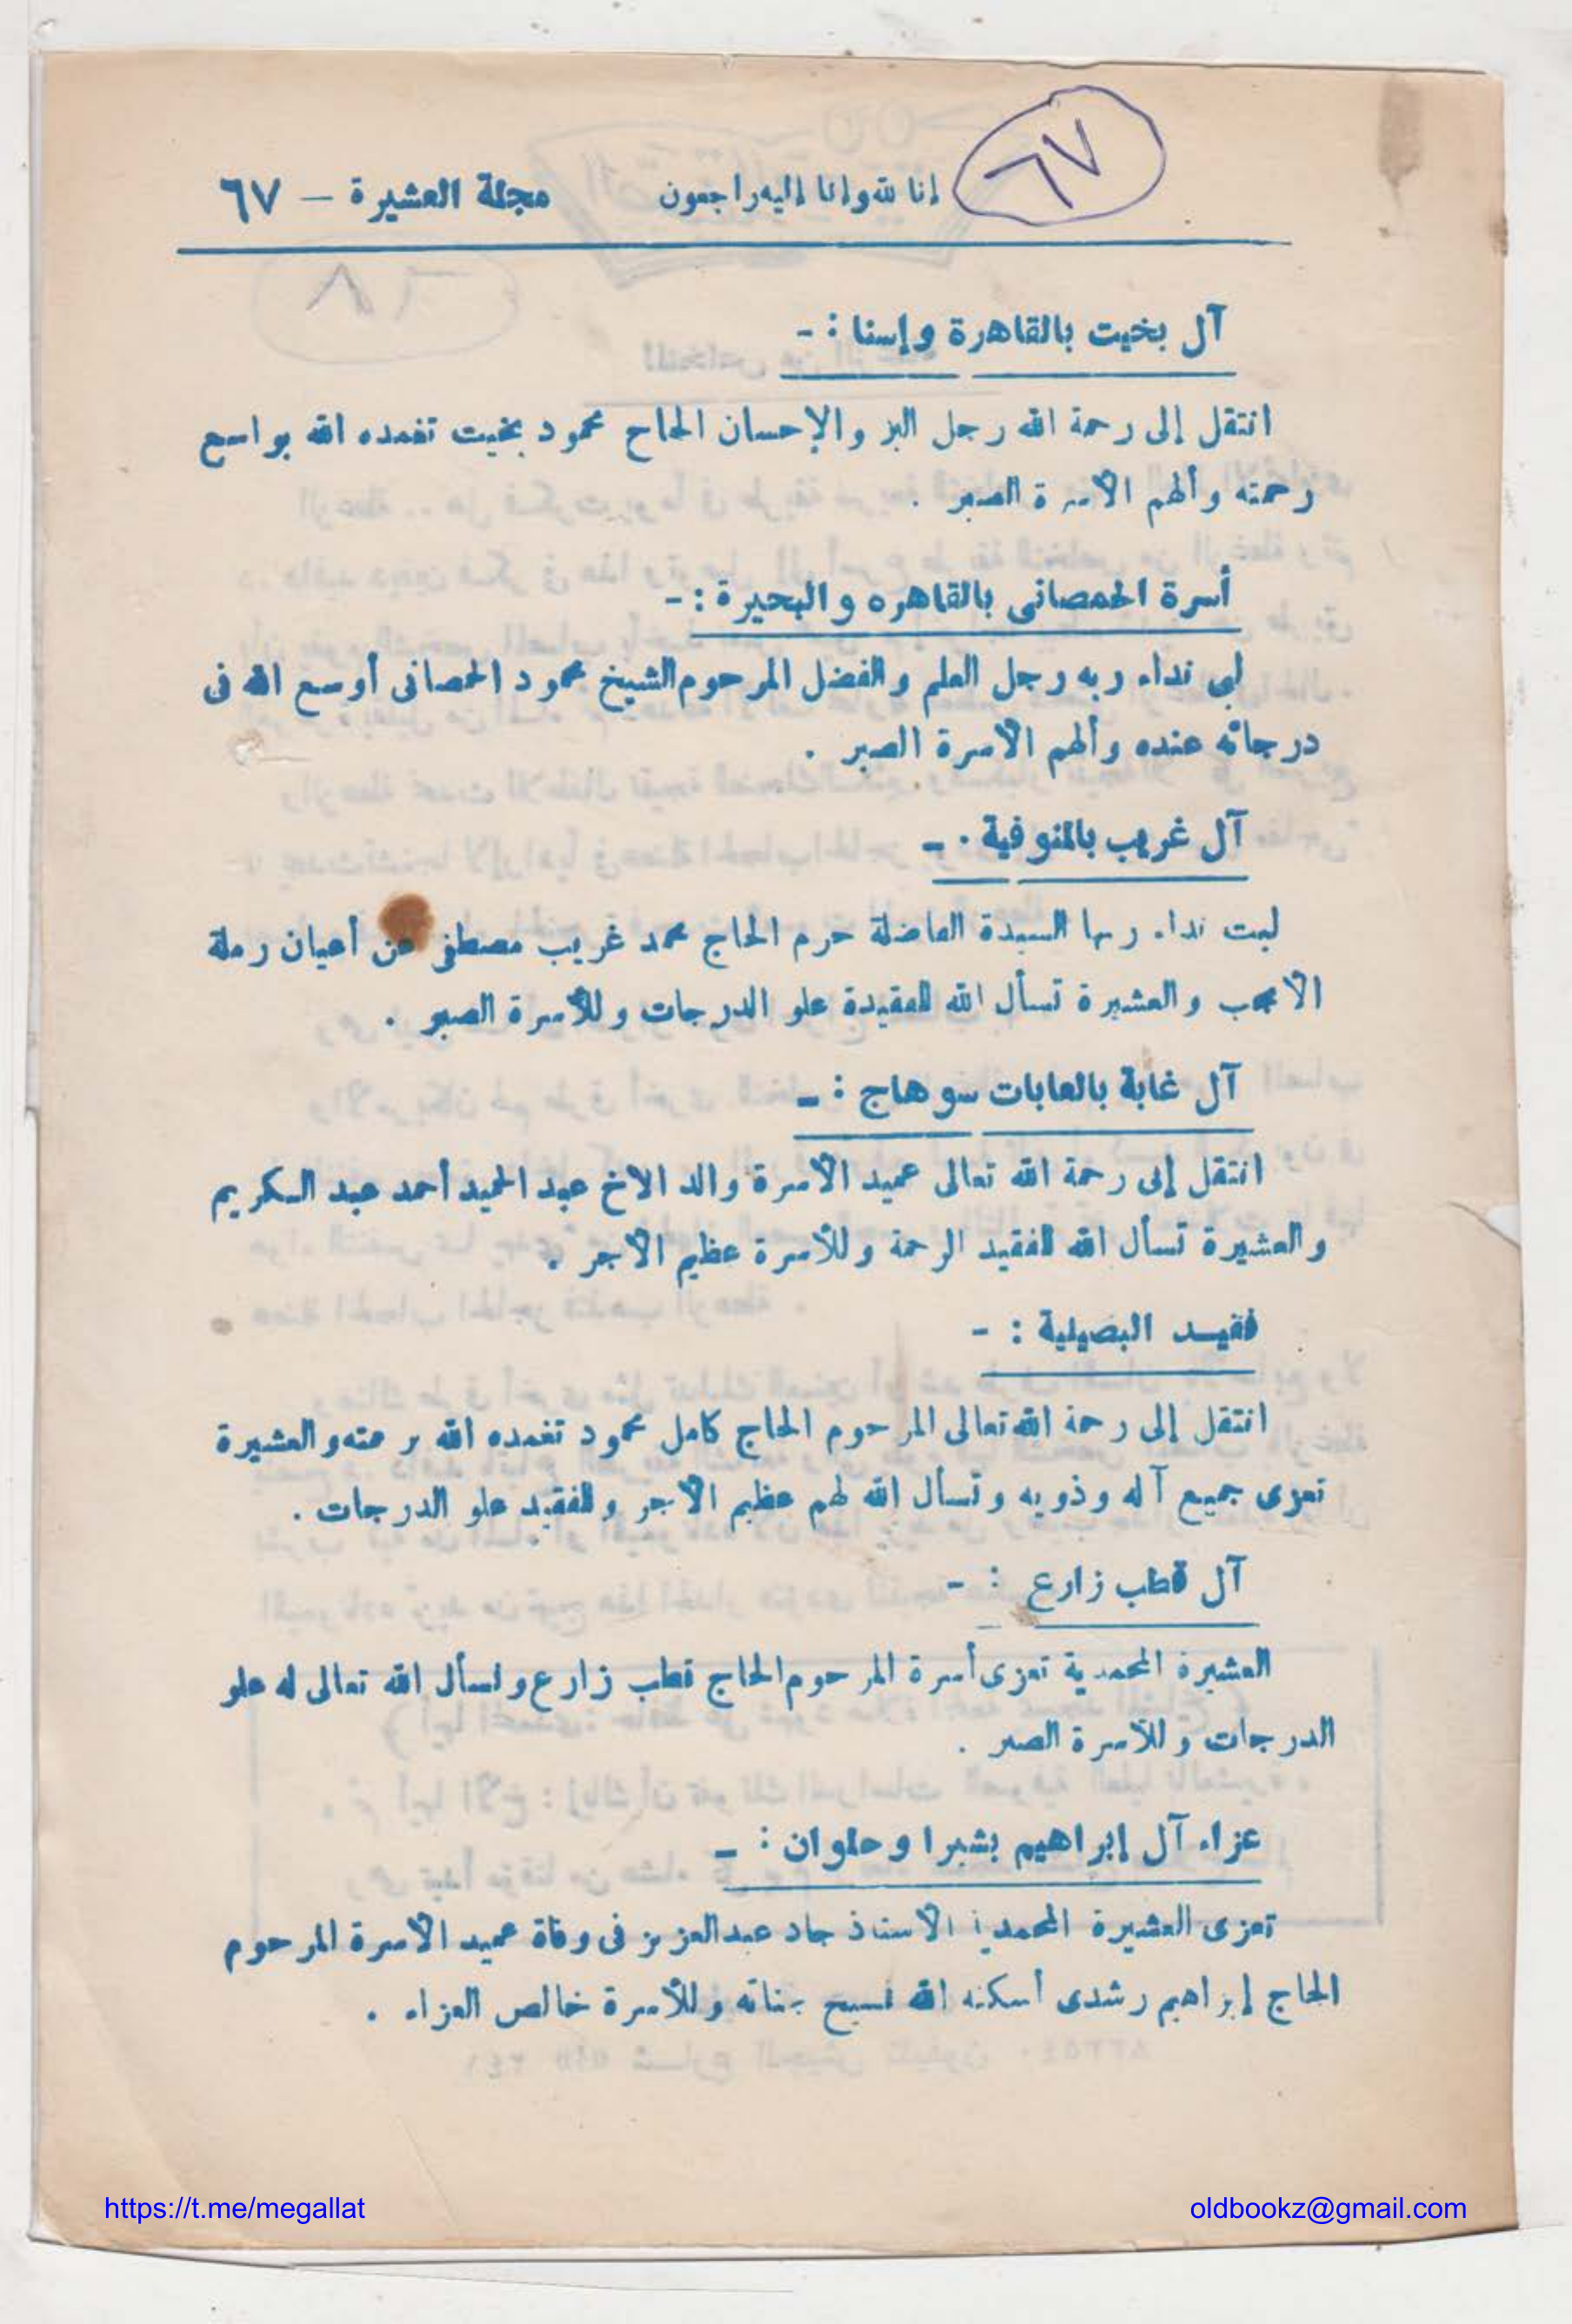 ٦٧
إنا لله وإنا إليه راجعون
مجلة العشيرة – ٦٧
آل بخيت بالقاهرة وإسنا : -
انتقل إلى رحمة الله رجل البر والإحسان الحاج محمود بخيت تغمده الله بواسع
رحمته وألهم الأسرة الصبر .
أسرة الحمصانى بالقاهره والبحيرة : -
لبى نداء ربه رجل العلم والفضل المرحوم الشيخ محمود الحمصانى أوسع الله فى
درجاته عنده وألهم الأسرة الصبر .
آل غريب بالمنوفية . -
لبت نداء ربها السيدة الفاضلة حرم الحاج محمد غريب مصطفى من أعيان رملة
الأنجب والعشيرة تسأل الله للفقيدة علو الدرجات وللأسرة الصبر .
آل غابة بالغابات سوهاج : -
انتقل إلى رحمة الله تعالى عميد الأسرة والد الاخ عبد الحميد أحمد عبد الكريم
والعشيرة تسأل الله للفقيد الرحمة وللأسرة عظيم الأجر .
فقيد البصيلية : -
انتقل إلى رحمة الله تعالى المرحوم الحاج كامل محمود تغمده الله برحمته والعشيرة
تعزى جميع آله وذويه وتسأل الله لهم عظيم الأجر وللفقيد علو الدرجات .
آل قطب زارع : -
العشيرة المحمدية تعزى أسرة المرحوم الحاج قطب زارع ونسأل الله تعالى له علو
الدرجات وللأسرة الصبر .
عزاء آل إبراهيم بشبرا وحلوان : -
تعزى العشيرة المحمدية الاستاذ جاد عبد العزيز فى وفاة عميد الأسرة المرحوم
الحاج إبراهيم رشدى أسكنه الله فسيح جناته وللأسرة خالص العزاء .
https://t.me/megallat
oldbookz@gmail.com